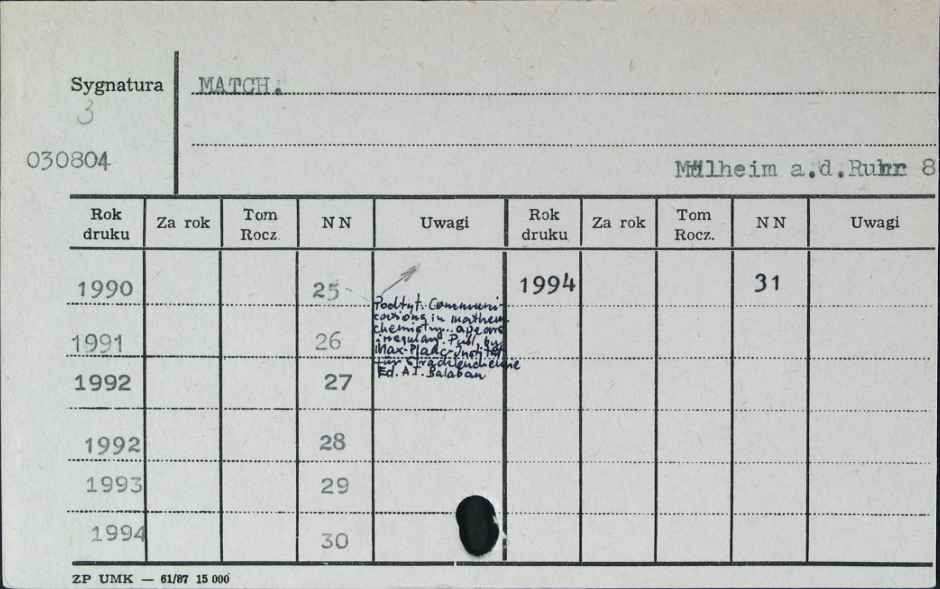 Sygnatura MATCH.
3
030804
Mülheim a.d.Ruhr 8
Rok druku Za rok Tom Rocz. N N Uwagi Rok druku Za rok Tom Rocz. N N Uwagi
1990 25 1994 31
Podtyt. Communi-
cations in mathem.
chemistry. appears
irregulary. Publ. by
Max-Planc-Institut
für Strahlenchemie
Ed. A.T. Balaban
1991 26
1992 27
1992 28
1993 29
1994 30
ZP UMK — 61/87 15 000